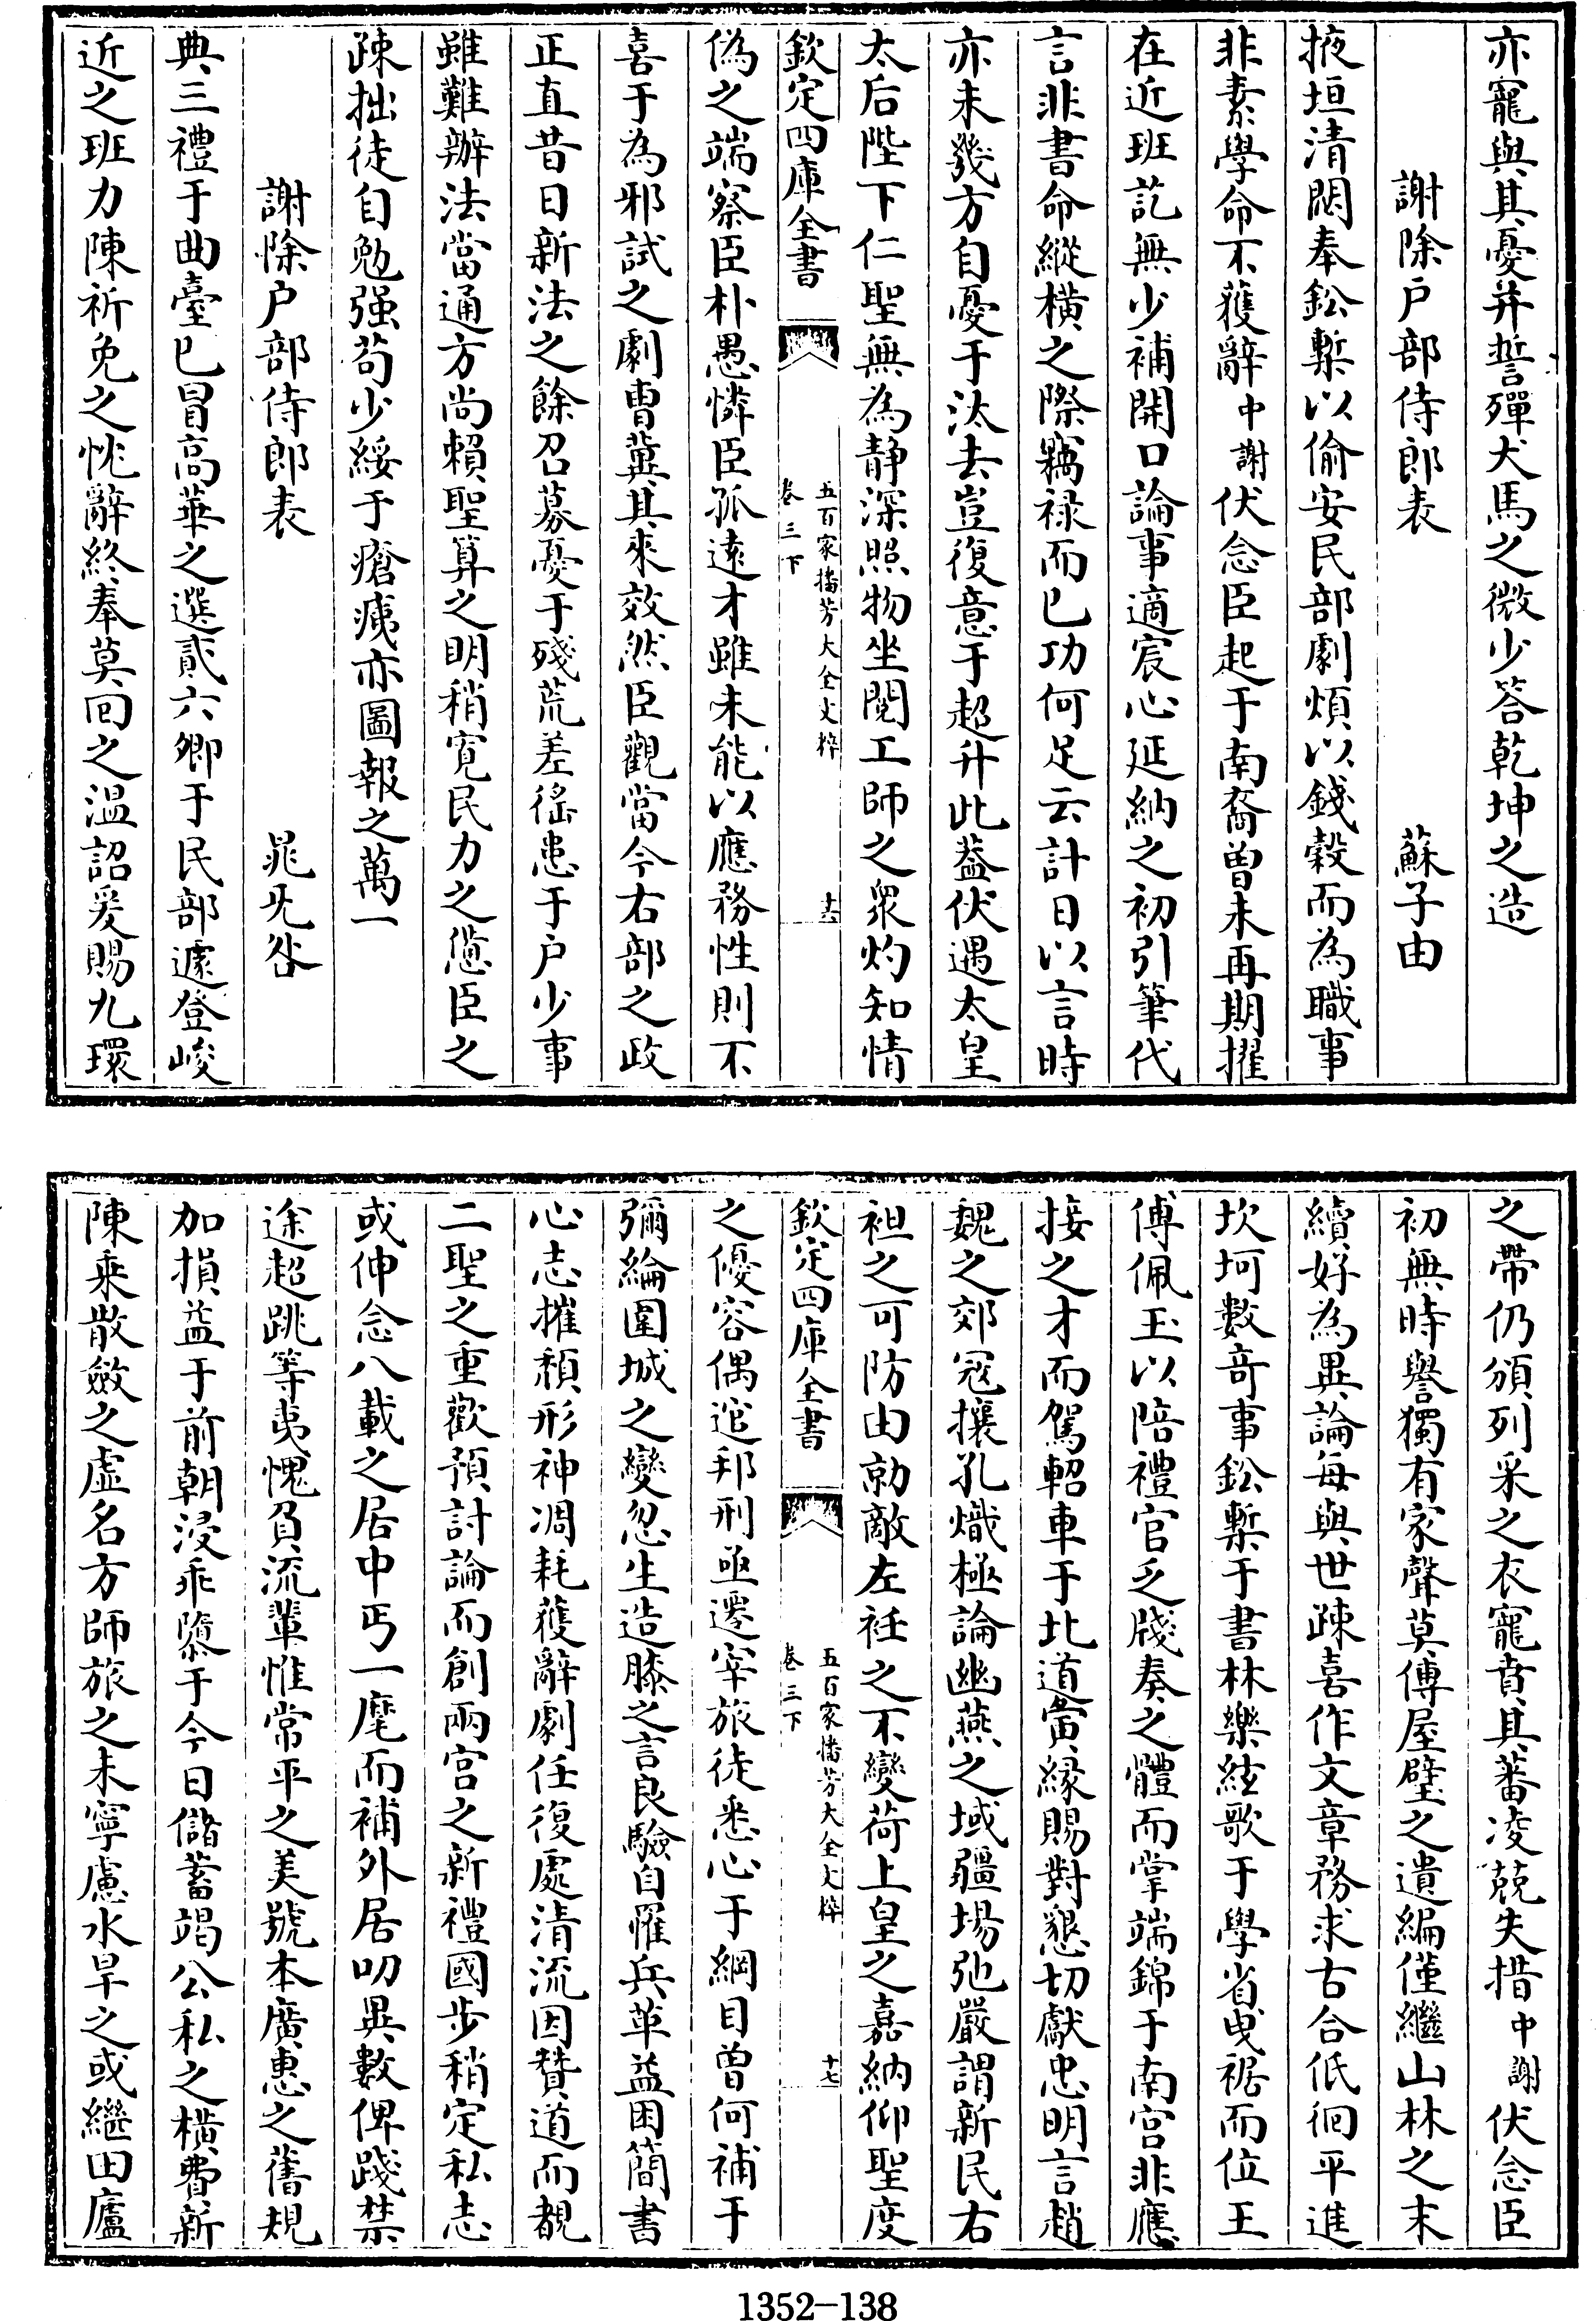 亦寵與其憂并誓殫犬馬之微少答乾坤之造
謝除户部侍郎表 蘇子由
掖垣清閟奉鈆槧以偷安民部劇煩以錢穀而為職事
非素學命不獲辭中謝伏念臣起于南裔曾未再期擢
在近班訖無少補開口論事適宸心延納之初引筆代
言非書命縱横之際竊禄而已功何足云計日以言時
亦未幾方自憂于汰去豈復意于超升此葢伏遇太皇
太后陛下仁聖無為静深照物坐閲工師之衆灼知情
欽定四庫全書
五百家播芳大全文粹
卷三下
十六
偽之端察臣朴愚憐臣孤遠才雖未能以應務性則不
喜于為邪試之劇曹冀其來效然臣觀當今右部之政
正直昔日新法之餘召募憂于殘荒差徭患于户少事
雖難辦法當通方尚賴聖算之明稍寛民力之憊臣之
疎拙徒自勉强茍少綏于瘡痍亦圖報之萬一
謝除户部侍郎表 晁旡咎
典三禮于曲臺已冒高華之選貳六卿于民部遽登峻
近之班力陳祈免之忱辭終奉莫囘之温詔爰賜九環
之帶仍頒列采之衣寵賁其蕃凌兢失措中謝伏念臣
初無時譽獨有家聲莫傳屋壁之遺編僅繼山林之末
續好為異論每與世疎喜作文章務求古合低徊平進
坎坷數竒事鈆槧于書林樂絃歌于學省曵裾而位王
傅佩玉以陪禮官乏牋奏之體而掌端錦于南宫非應
接之才而駕軺車于北道夤緣賜對懇切獻忠明言趙
魏之郊冦攘孔熾極論幽燕之域疆埸弛嚴謂新民右
袒之可防由勍敵左衽之不變荷上皇之嘉納仰聖度
欽定四庫全書
五百家播芳大全文粹
卷三下
十七
之優容偶逭邦刑亟遷宰旅徒悉心于綱目曽何補于
彌綸圍城之變忽生造膝之言良驗自罹兵革益困簡書
心志摧頽形神凋耗獲辭劇任復處清流因賛道而覩
二聖之重歡預討論而創兩宫之新禮國步稍定私志
或伸念八載之居中丐一麾而補外居叨異數俾踐禁
途超跳等夷愧負流輩惟常平之美號本廣惠之舊規
加損益于前朝浸乖隳于今日儲蓄竭公私之横費新
陳乘散斂之虚名方師旅之未寧慮水旱之或繼田廬
1352-138